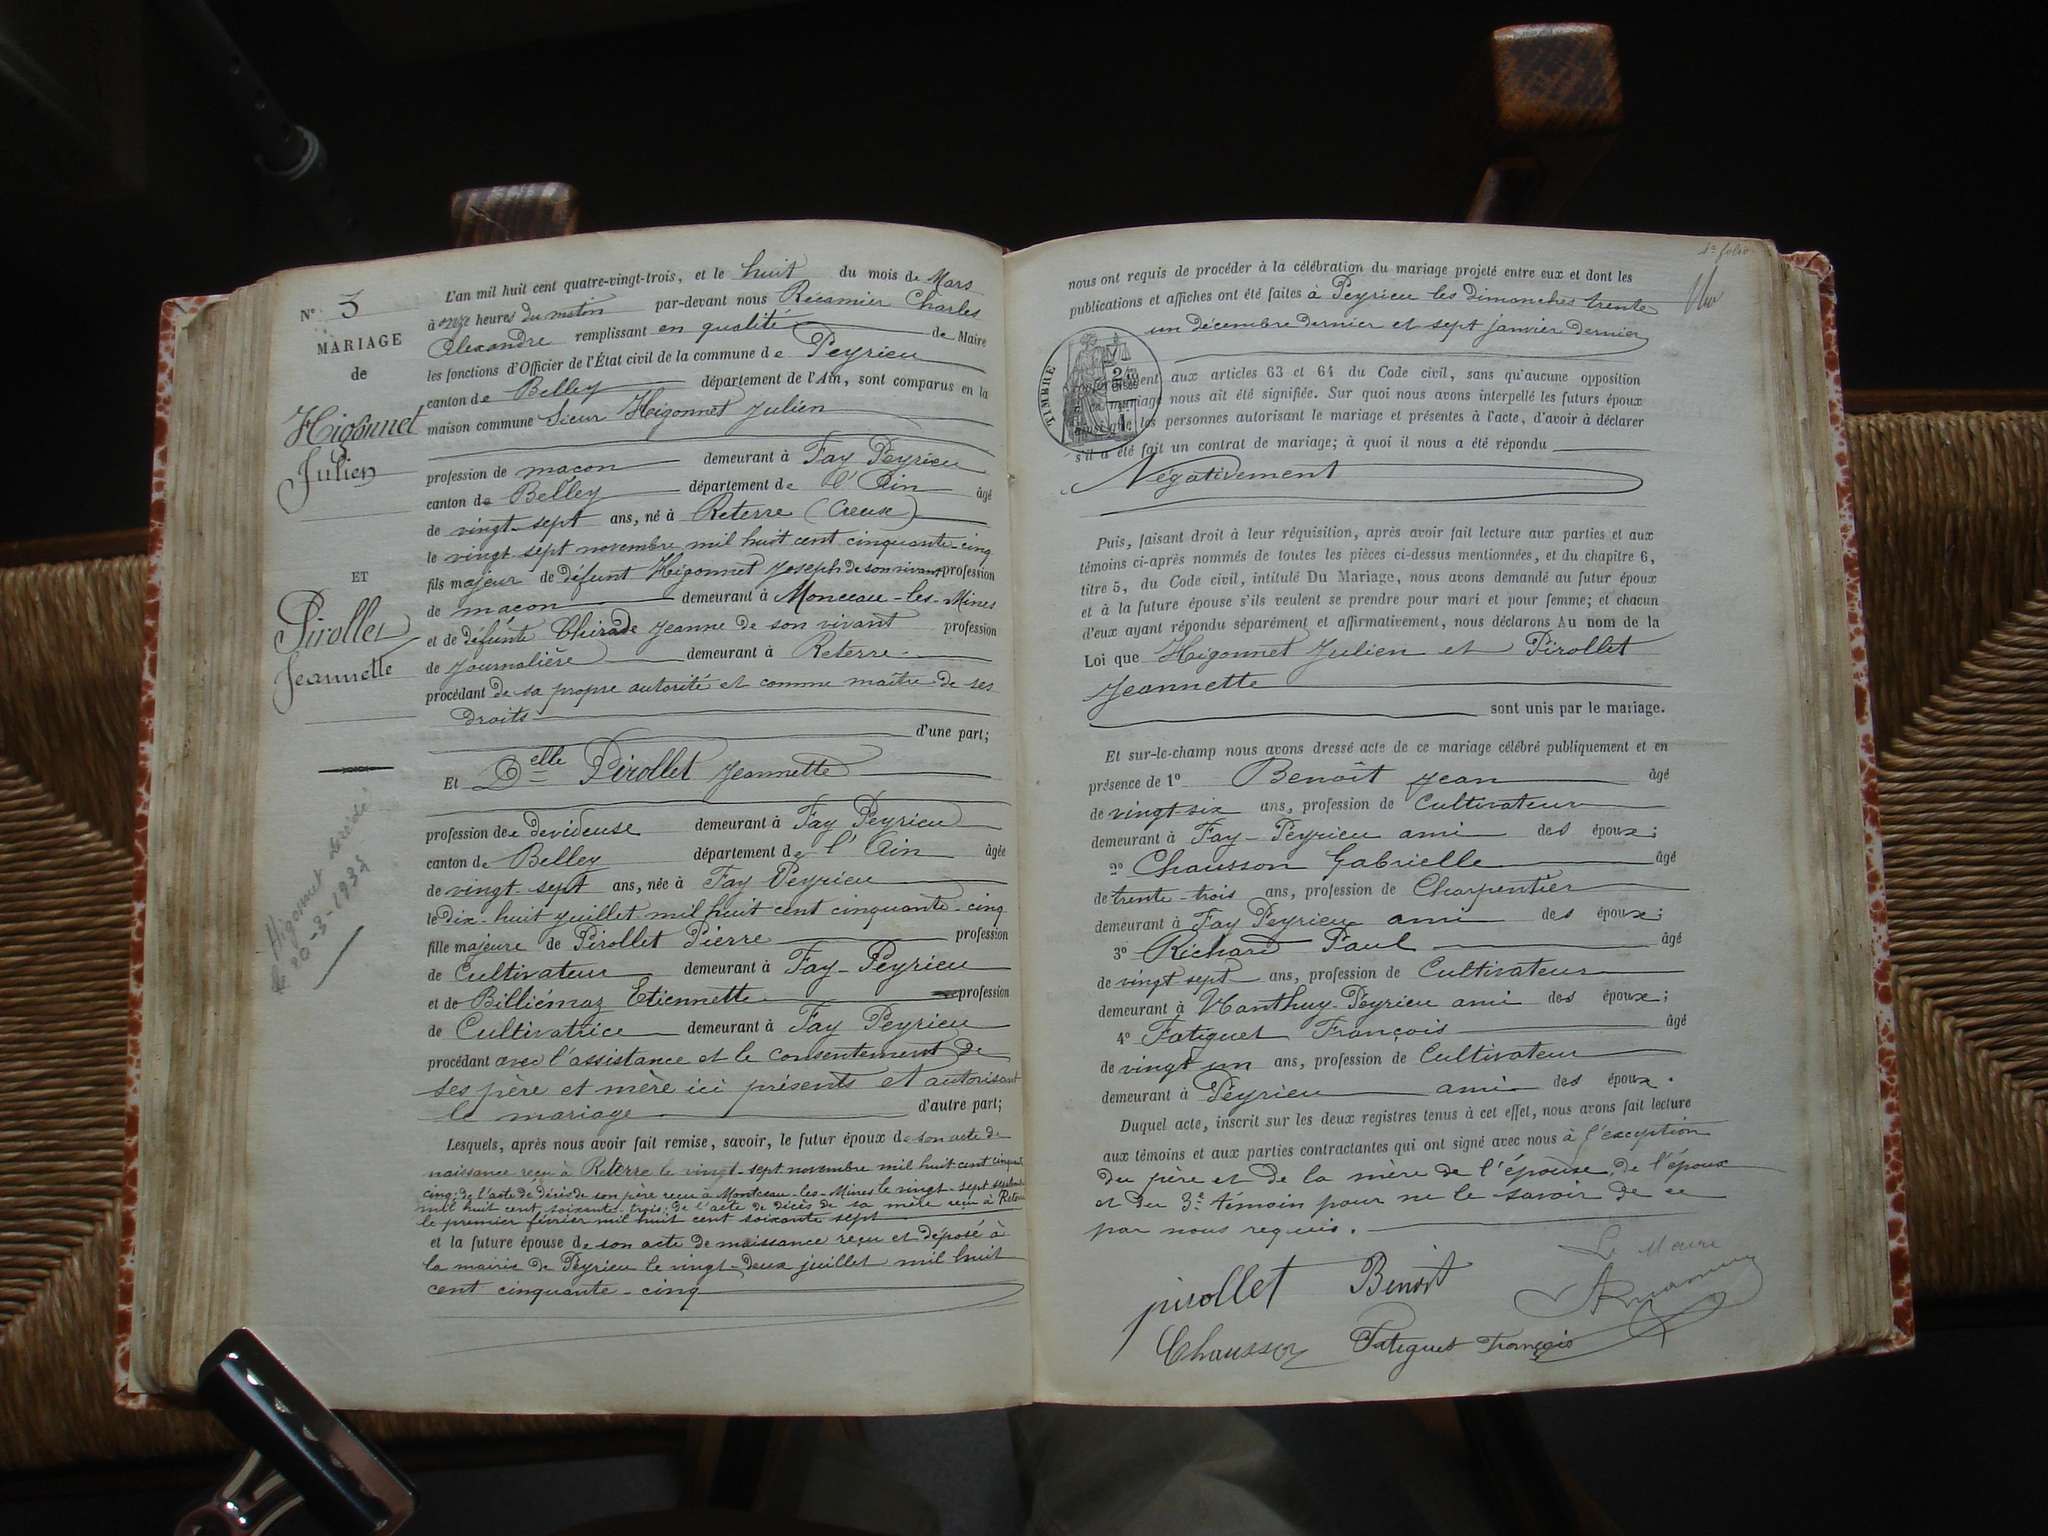 N° 3
MARIAGE
de
Higonnet
Julien
ET
Pirollet
Jeannette
Higonnet décédé
le 20-3-193
L'an mil huit cent quatre-vingt-trois, et le huit du mois de Mars
à onze heures du matin par-devant nous Récamier Charles
Alexandre remplissant en qualité de Maire
les fonctions d'Officier de l'État civil de la commune de Peyrieu
canton de Belley département de l'Ain, sont comparus en la
maison commune Sieur Higonnet Julien
profession de maçon demeurant à Fay Peyrieu
canton de Belley département de l'Ain âgé
de vingt-sept ans, né à Reterre (Creuse)
le vingt-sept novembre mil huit cent cinquante-cinq
fils majeur de défunt Higonnet Joseph de son vivant profession
de maçon demeurant à Monceau-les-Mines
et de défunte Chirade Jeanne de son vivant profession
de Journalière demeurant à Reterre
procédant de sa propre autorité et comme maître de ses
droits
d'une part;
Et Delle Pirollet Jeannette
profession de devideuse demeurant à Fay Peyrieu
canton de Belley département de l'Ain âgée
de vingt sept ans, née à Fay Peyrieu
le dix-huit juillet mil huit cent cinquante-cinq
fille majeure de Pirollet Pierre profession
de Cultivateur demeurant à Fay-Peyrieu
et de Billiémaz Etiennette profession
de Cultivatrice demeurant à Fay Peyrieu
procédant avec l'assistance et le consentement de
ses père et mère ici présents et autorisant
le mariage d'autre part;
Lesquels, après nous avoir fait remise, savoir, le futur époux de son acte de
naissance reçu à Reterre le vingt-sept novembre mil huit-cent cinquante
cinq; de l'acte de décès de son père reçu à Montceau-les-Mines le vingt-sept septembre
mil huit cent soixante-trois; de l'acte de décès de sa mère reçu à Reterre
le premier février mil huit cent soixante sept
et la future épouse de son acte de naissance reçu et déposé à
la mairie de Peyrieu le vingt-deux juillet mil huit
cent cinquante-cinq
folio
nous ont requis de procéder à la célébration du mariage projeté entre eux et dont les
publications et affiches ont été faites à Peyrieu les dimanches trente
un décembre dernier et sept janvier dernier
TIMBRE
conformément aux articles 63 et 64 du Code civil, sans qu'aucune opposition
au mariage nous ait été signifiée. Sur quoi nous avons interpellé les futurs époux
ainsi que les personnes autorisant le mariage et présentes à l'acte, d'avoir à déclarer
s'il a été fait un contrat de mariage; à quoi il nous a été répondu
Négativement
Puis, faisant droit à leur réquisition, après avoir fait lecture aux parties et aux
témoins ci-après nommés de toutes les pièces ci-dessus mentionnées, et du chapitre 6,
titre 5, du Code civil, intitulé Du Mariage, nous avons demandé au futur époux
et à la future épouse s'ils veulent se prendre pour mari et pour femme; et chacun
d'eux ayant répondu séparément et affirmativement, nous déclarons Au nom de la
Loi que Higonnet Julien et Pirollet
Jeannette
sont unis par le mariage.
Et sur-le-champ nous avons dressé acte de ce mariage célébré publiquement et en
présence de 1° Benoît Jean âgé
de vingt-six ans, profession de Cultivateur
demeurant à Fay-Peyrieu ami des époux;
2° Chausson Gabrielle âgé
de trente-trois ans, profession de Charpentier
demeurant à Fay Peyrieu ami des époux;
3° Richard Paul âgé
de vingt sept ans, profession de Cultivateur
demeurant à Nanthuy-Peyrieu ami des époux;
4° Fatiguet François âgé
de vingt un ans, profession de Cultivateur
demeurant à Peyrieu ami des époux.
Duquel acte, inscrit sur les deux registres tenus à cet effet, nous avons fait lecture
aux témoins et aux parties contractantes qui ont signé avec nous à l'exception
du père et de la mère de l'épouse, de l'époux
et du 3e témoin pour ne le savoir de ce
par nous requis.
Le Maire
pirollet Benoit
Chausson Fatiguet François